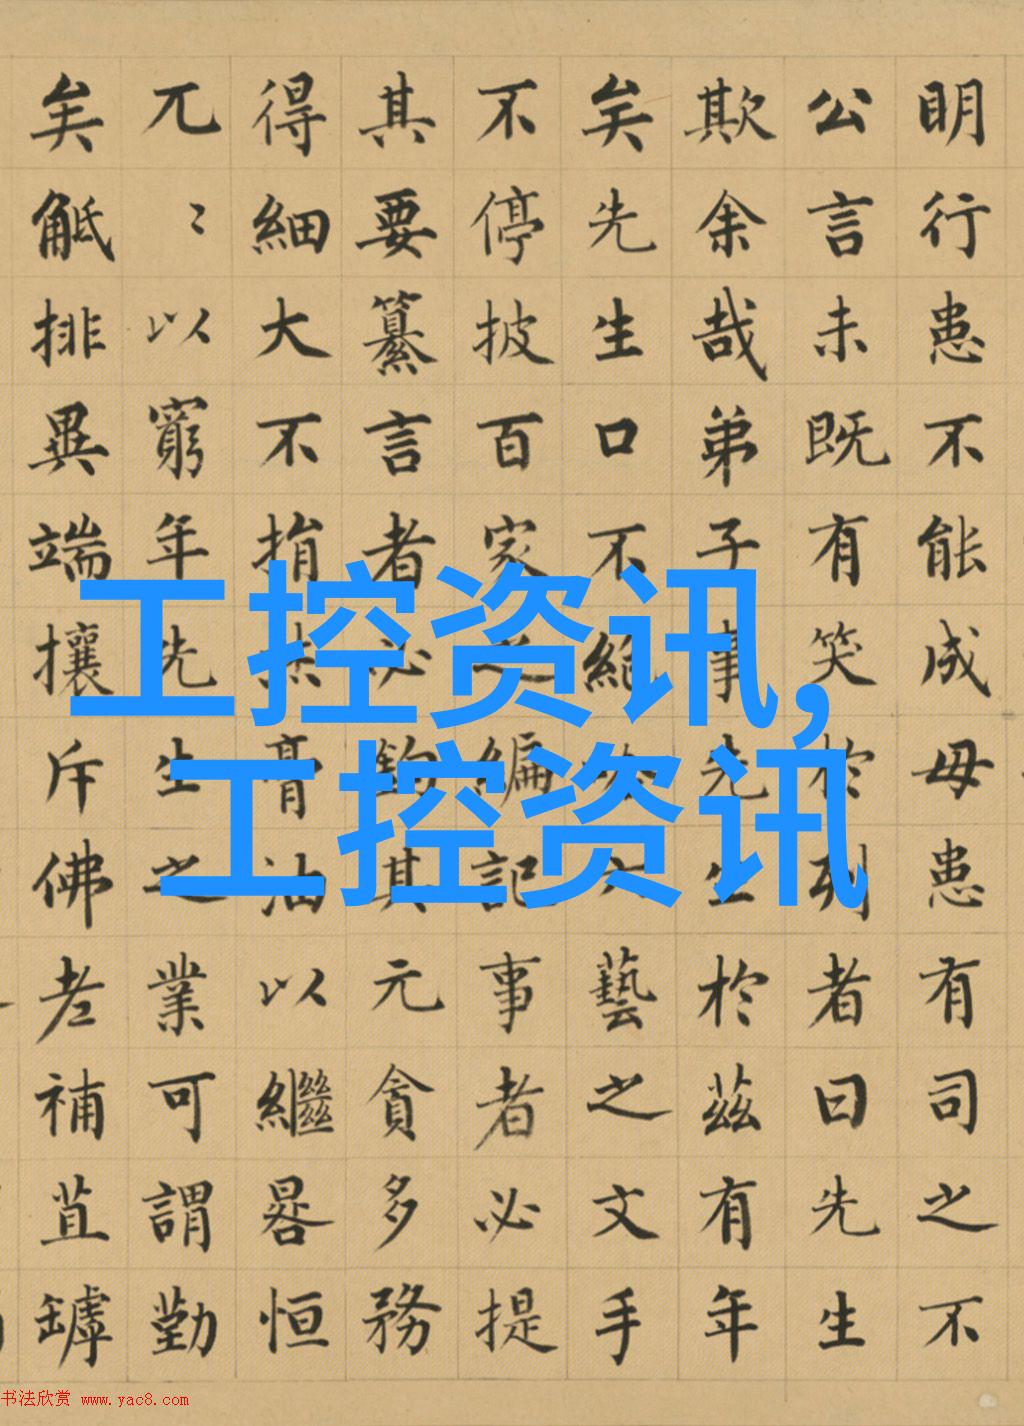 明行患不能成毋患有司之不
公言未既有笑於列者曰先生
欺余哉弟子事先生於茲有年
矣先生口不絕六藝之文手
不停披百家之編記事者必提
其要纂言者必鉤其元貪多務
得細大不捐焚膏油以繼晷恒
兀〻以窮年先生之業可謂勤
矣觝排異端攘斥佛老補苴罅
工控资讯,
工控资讯
书法欣赏 www.yac8.com